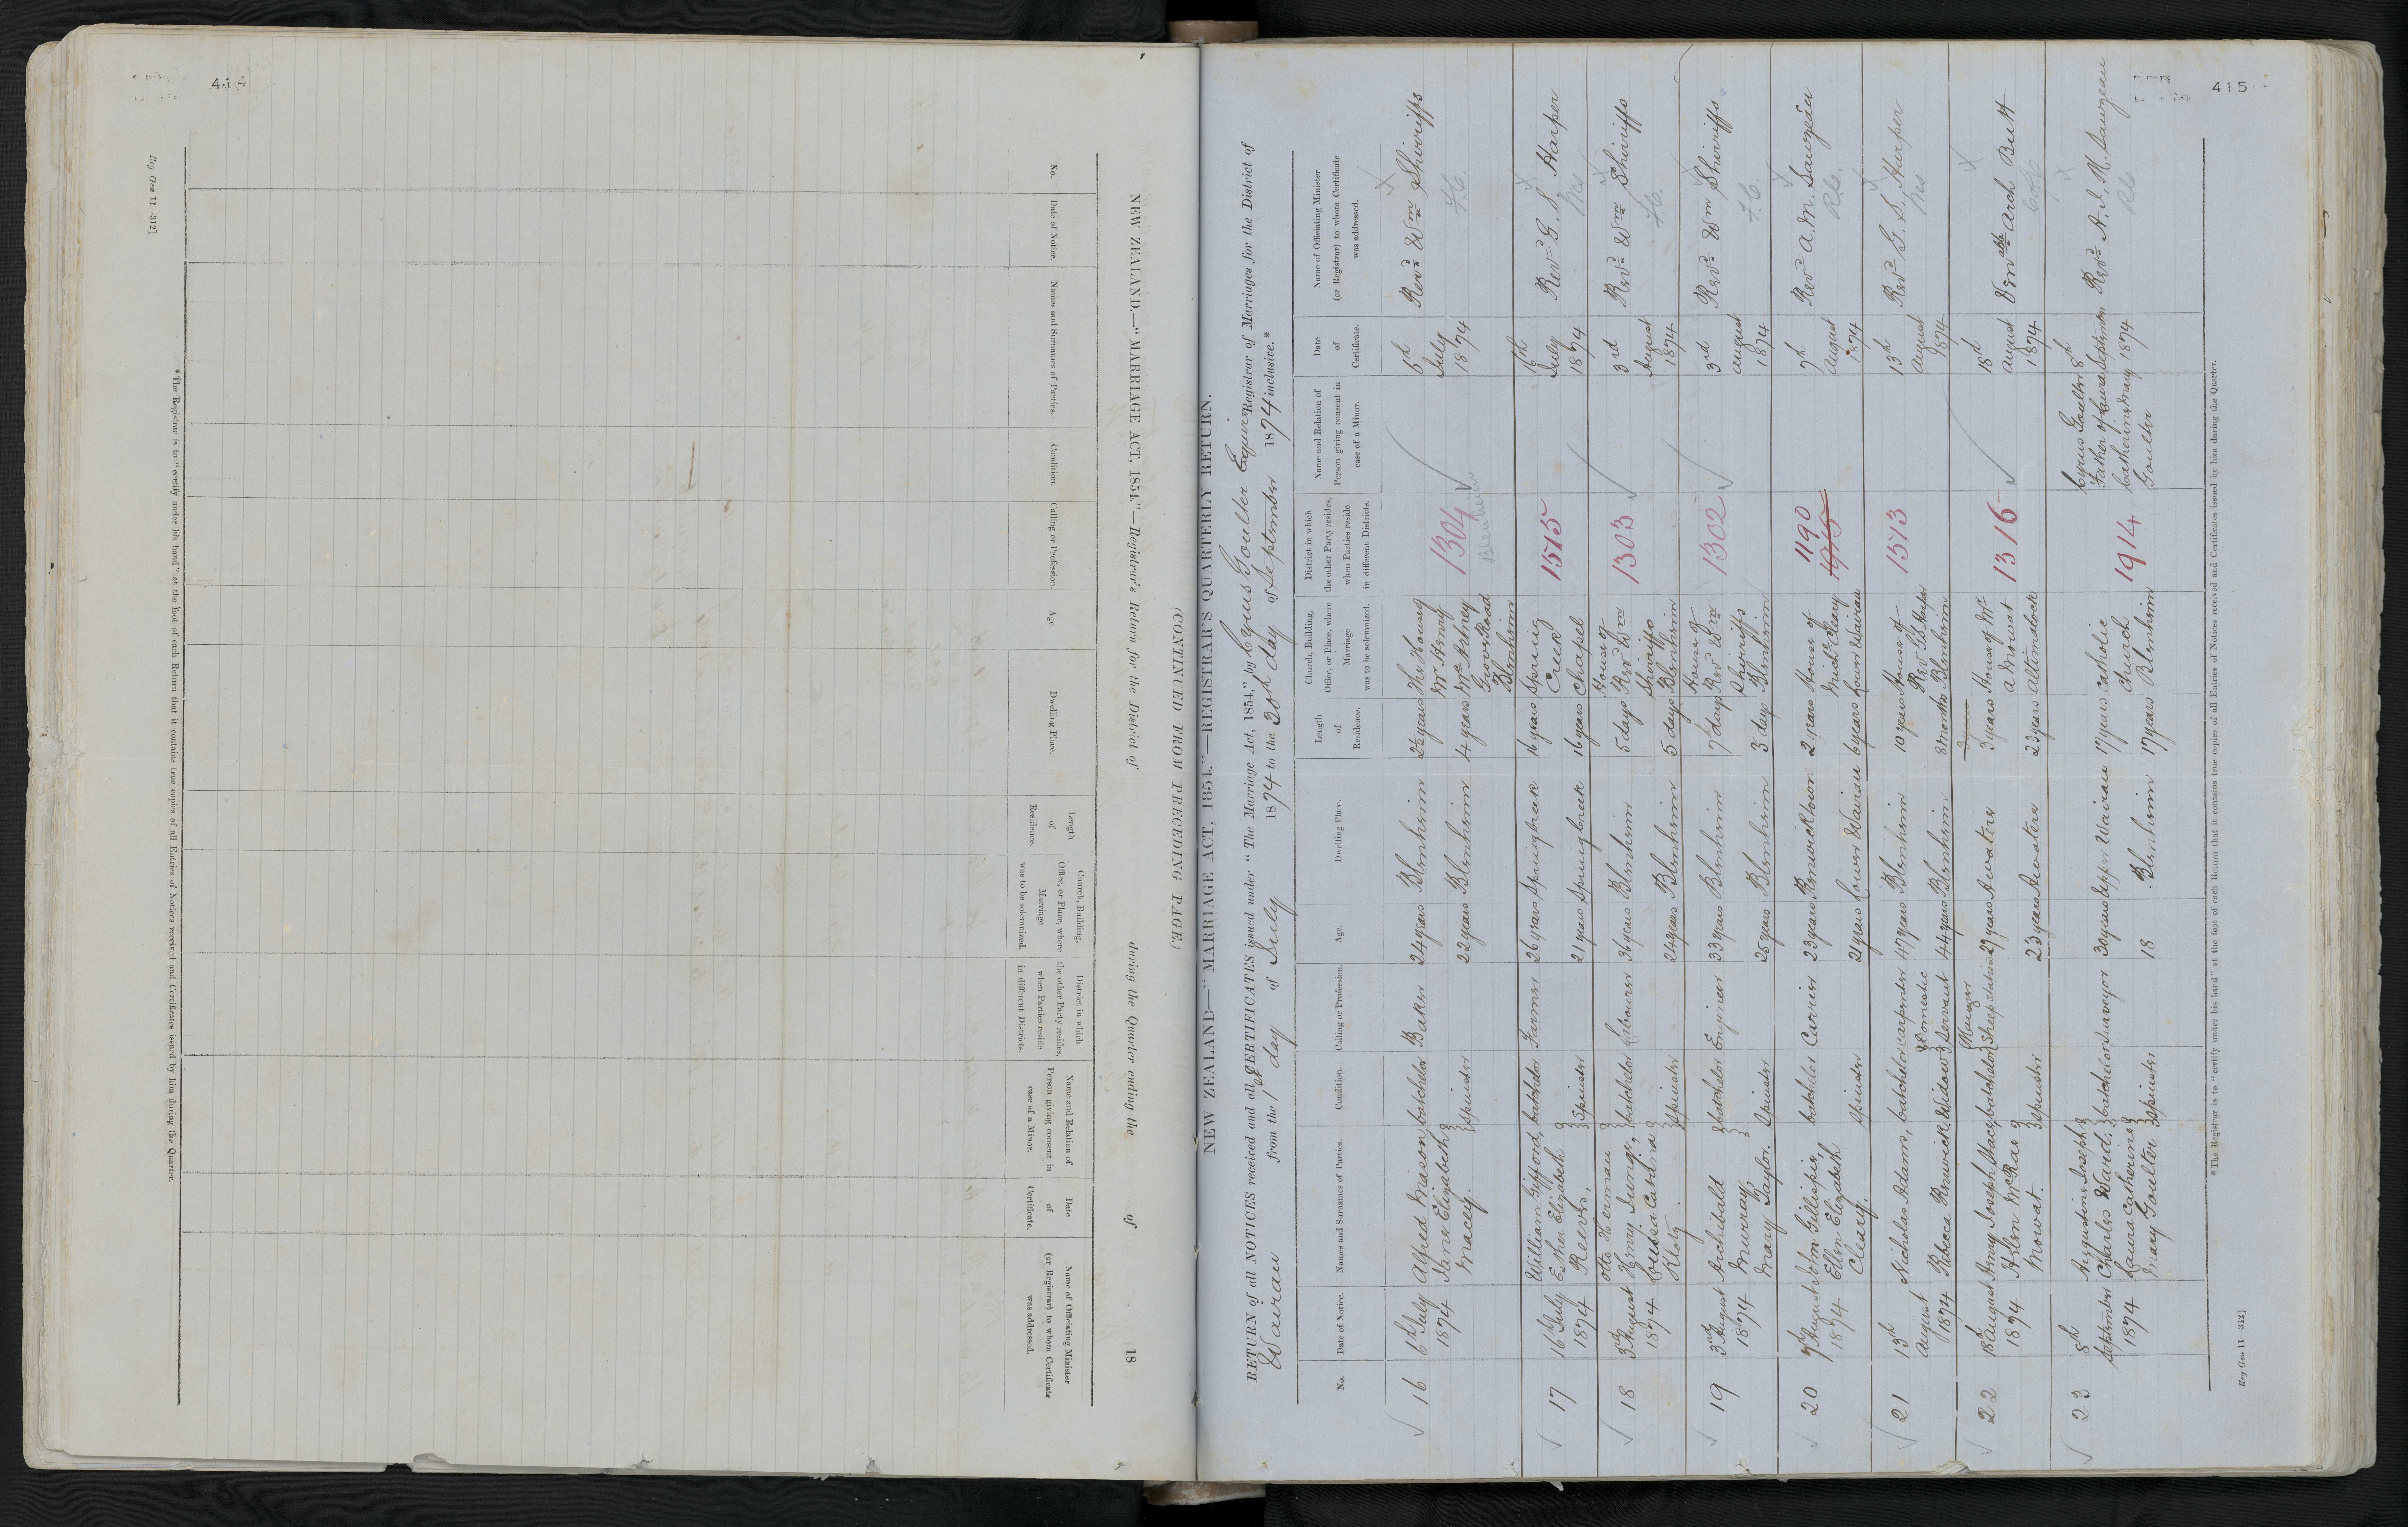 414
Reg Gen 11—312]
NEW ZEALAND.—"MARRIAGE ACT, 1854."—Registrar's Return for the District of during the Quarter ending the of 18
No.
Date of Notice.
Names and Surnames of Parties.
Condition.
Calling or Profession.
Age.
Dwelling Place.
Length of Residence.
Church, Building, Office, or Place, where Marriage was to be solemnized.
District in which the other Party resides, when Parties reside in different Districts.
Name and Relation of Person giving consent in case of a Minor.
Date of Certificate.
Name of Officiating Minister (or Registrar) to whom Certificate was addressed.
* The Registrar is to "certify under his hand" at the foot of each Return that it contains true copies of all Entries of Notices received and Certificates issued by him during the Quarter.
(CONTINUED FROM PRECEDING PAGE.)
415
NEW ZEALAND—"MARRIAGE ACT, 1854."—REGISTRAR'S QUARTERLY RETURN.
RETURN of all NOTICES received and all CERTIFICATES issued under "The Marriage Act, 1854," by Cyrus Goulter Esquire Registrar of Marriages for the District of
Wairau from the 1st day of July 1874 to the 30th day of September 1874 inclusive.*
No.
Date of Notice.
Names and Surnames of Parties.
Condition.
Calling or Profession.
Age.
Dwelling Place.
Length of Residence.
Church, Building, Office, or Place, where Marriage was to be solemnized.
District in which the other Party resides, when Parties reside in different Districts.
Name and Relation of Person giving consent in case of a Minor.
Date of Certificate.
Name of Officiating Minister (or Registrar) to whom Certificate was addressed.
16 6th July Alfred Mason batchelor Baker 24 years Blenheim years The House of 1304 6th Revd Wm Shirriffs
1874 Jane Elizabeth Macey. spinster 22 years Blenheim 4 years Mr Henry McArtney Grove Road Blenheim Blenheim July 1874 F.C.
17 16th July William Gifford, batchelor Farmer 26 years Spring Creek 16 years Spring 1515 16th Revd G. S. Harper
1874 Esther Elizabeth Reeves, spinster 21 years Spring Creek 16 years Creek Chapel July 1874 Wes
18 3rd August Otto Herman Henry Jung, batchelor Labourer 36 years Blenheim 5 days House of 1303 3rd Revd Wm Shirriffs
1874 Louisa Catrina Klotz. spinster 24 years Blenheim 5 days Revd Wm Shirriffs Blenheim August 1874 F.C.
19 3rd August Archibald Murray, batchelor Engineer 33 years Blenheim 7 days House of 1302 3rd Revd Wm Shirriffs
1874 Mary Taylor. Spinster 25 years Blenheim 3 days Revd Wm Shirriffs Blenheim August 1874 F.C.
20 7th August John Gillispie, batchelor Carrier 23 years Renwicktown 2 years House of 1190 7th Revd A. M. Sauzeau
1874 Ellen Elizabeth Cleary. spinster 21 years Lower Wairau 6 years Michl Cleary Lower Wairau August 1874 R.C.
21 13th Nicholas Adams, batchelor carpenter 47 years Blenheim 10 years House of 1513 13th Revd G. S. Harper
August 1874 Rebecca Renwick, Widow Domestic Servant 44 years Blenheim 8 months Revd G S Harper Blenheim August 1874 Wes
22 18th August Henry Joseph Stace, batchelor Manager Sheep Station 27 years Awatere 3 years House of Mr 1316 18th Venable Arch Butt
1874 Helen McRae Mowat. spinster 23 years Awatere 23 years A Mowat Altimarlock August 1874 C of E
23 8th September Augustine Joseph Charles David, batchelor surveyor 30 years Upper Wairau 17 years Catholic 1914 Cyrus Goulter Father of Laura 8th September Revd A. M. Sauzeau
1874 Laura Catherine Mary Goulter spinster 18 Blenheim 17 years Church Blenheim Catherine Mary Goulter 1874 R.C.
* The Registrar is to "certify under his hand" at the foot of each Return that it contains true copies of all Entries of Notices received and Certificates issued by him during the Quarter.
Reg Gen 11—312]